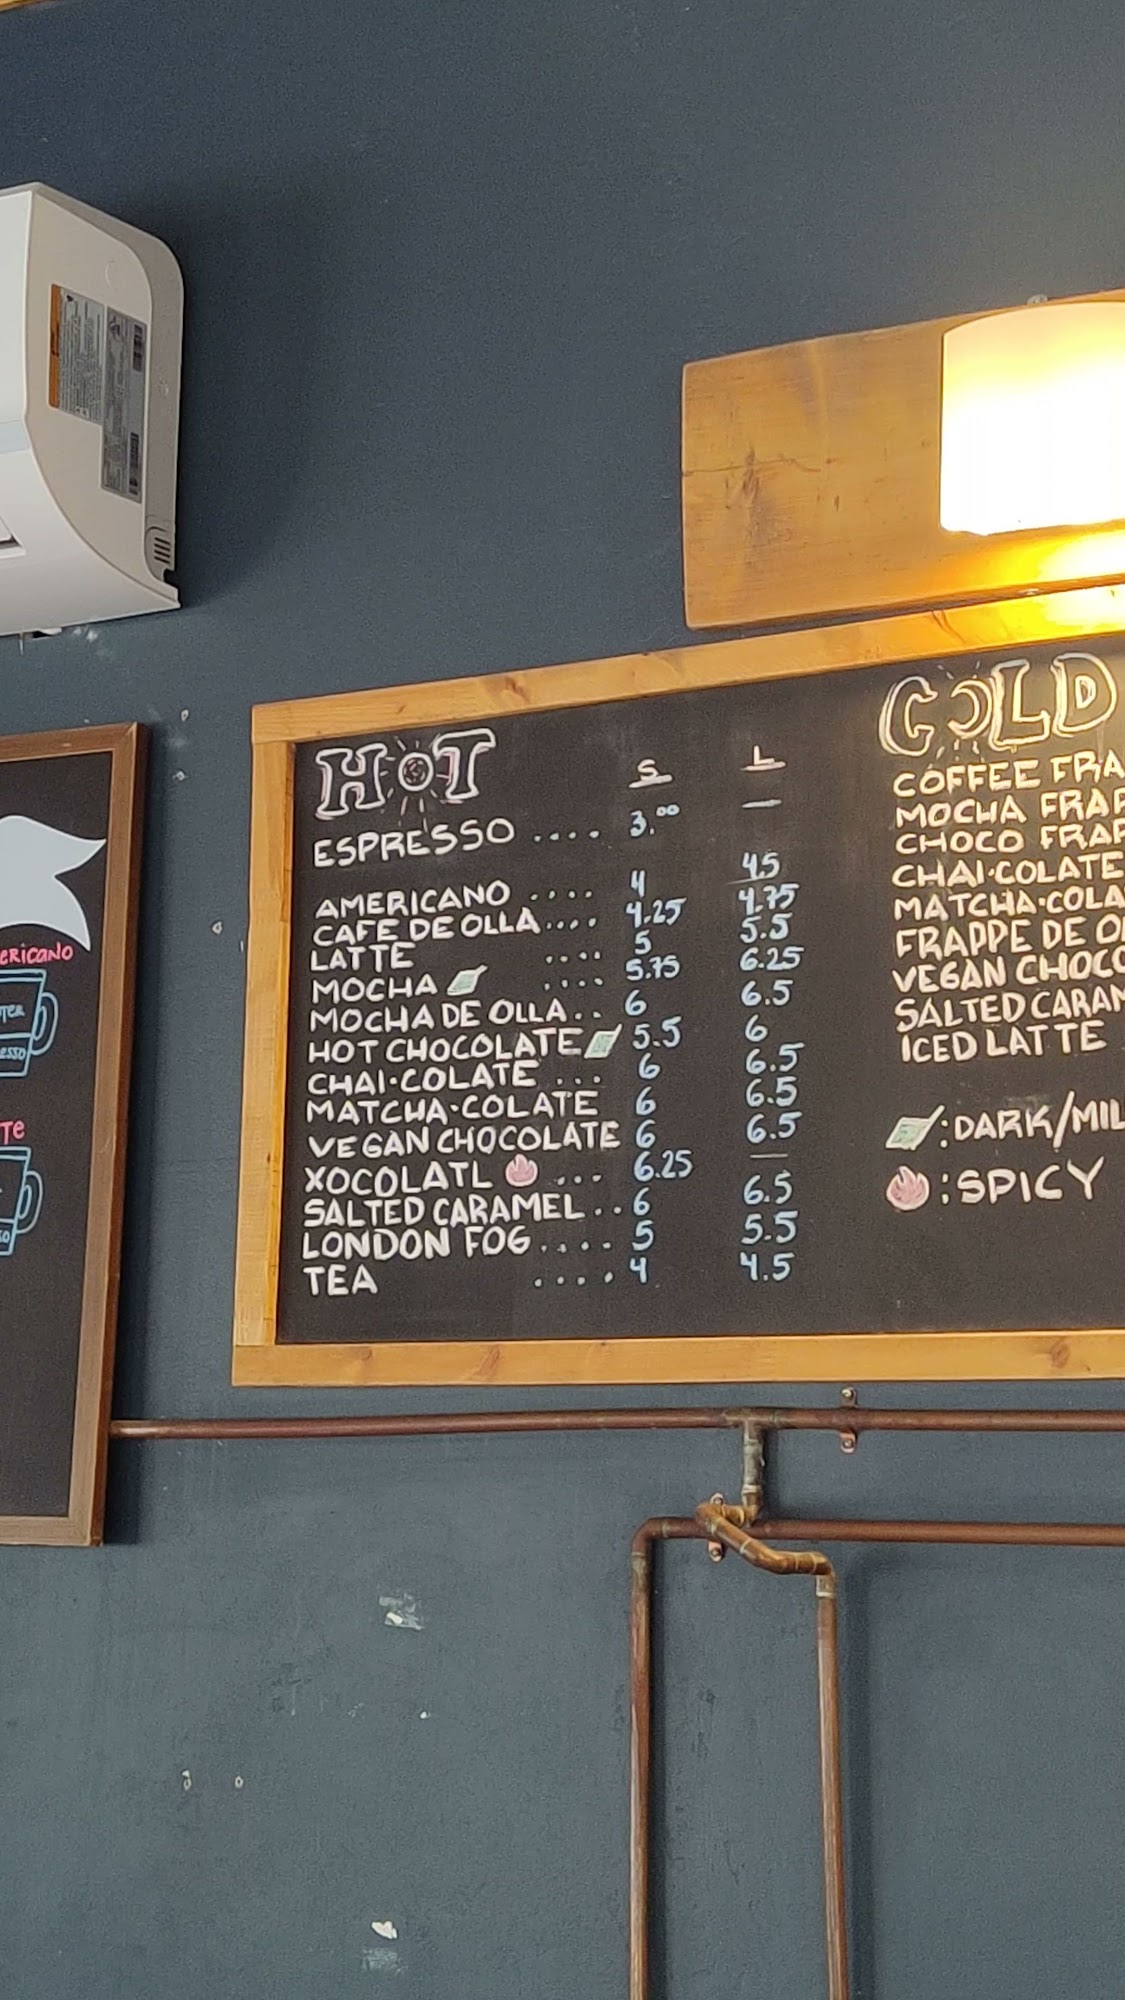 HOT
S L
ESPRESSO .... 3.00 —
AMERICANO .... 4 4.5
CAFE DE OLLA .... 4.25 4.75
LATTE .... 5 5.5
MOCHA .... 5.75 6.25
MOCHA DE OLLA .. 6 6.5
HOT CHOCOLATE 5.5 6
CHAI·COLATE ... 6 6.5
MATCHA·COLATE 6 6.5
VEGAN CHOCOLATE 6 6.5
XOCOLATL ... 6.25 —
SALTED CARAMEL .. 6 6.5
LONDON FOG .... 5 5.5
TEA .... 4 4.5
COLD
COFFEE FRA
MOCHA FRAP
CHOCO FRAP
CHAI·COLATE
MATCHA·COLA
FRAPPE DE O
VEGAN CHOCO
SALTED CARAM
ICED LATTE
: DARK/MIL
: SPICY
ERICANO
TER
ESSO
TE
SO